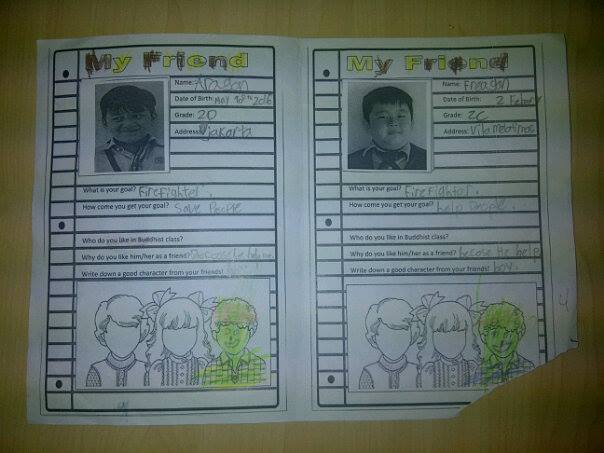 My Friend
Name: Aragon
Date of Birth: May 10th 2016
Grade: 2D
Address: jakarta
What is your goal? Firefighter.
How come you get your goal? Save People
Who do you like in Buddhist class?
Why do you like him/her as a friend? he help me
Write down a good character from your friends!
My Friend
Name:
Date of Birth: 2
Grade: 2C
Address: Vila
What is your goal? Firefighter.
How come you get your goal? help People.
Who do you like in Buddhist class?
Why do you like him/her as a friend? Becose He help
Write down a good character from your friends! boy.